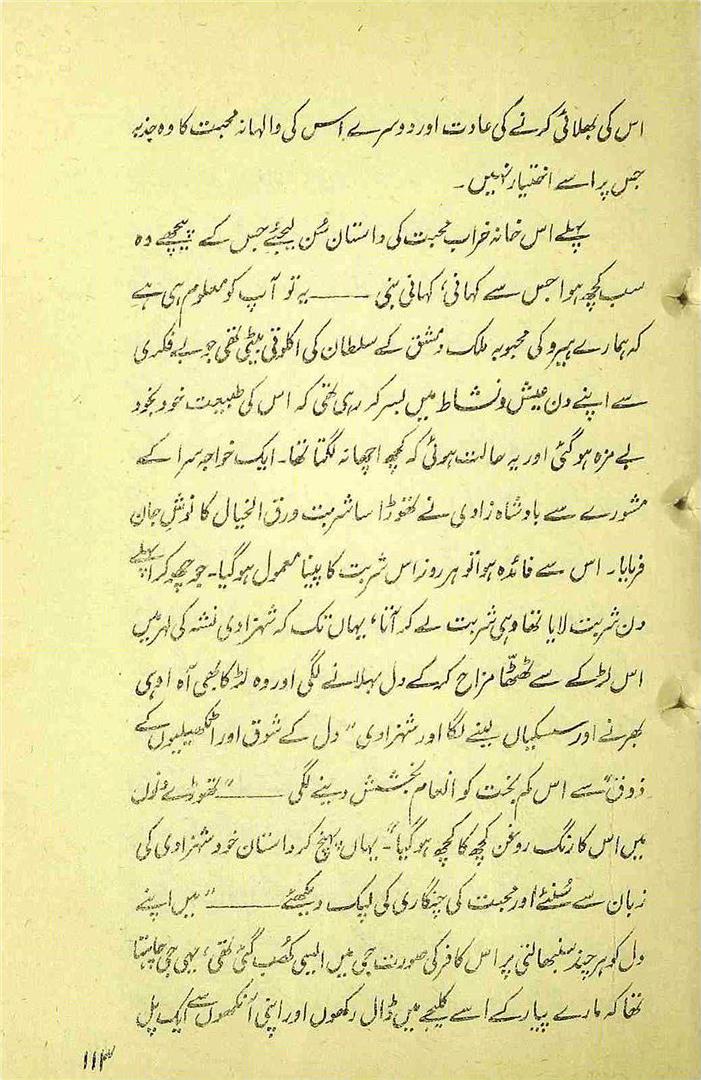 اس کی بھلائی کرنے کی عادت اور دوسرے اس کی والہانہ محبت کا وہ جذبہ
جس پر اسے اختیار نہیں۔
پہلے اس خانہ خراب محبت کی داستان سُن لیجئے جس کے پیچھے وہ
سب کچھ ہوا جس سے کہانی، کہانی بنی ——— یہ تو آپ کو معلوم ہی ہے
کہ ہمارے ہیرو کی محبوبہ ملک دمشق کے سلطان کی اکلوتی بیٹی تھی جو بے فکری
سے اپنے دن عیش و نشاط میں بسر کر رہی تھی کہ اس کی طبیعت خود بخود
بے مزہ ہو گئی اور یہ حالت ہوئی کہ کچھ اچھا نہ لگتا تھا۔ ایک خواجہ سرا کے
مشورے سے بادشاہ زادی نے تھوڑا سا شربت ورق الخیال کا نوشِ جان
فرمایا۔ اس سے فائدہ ہوا تو ہر روز اس شربت کا پینا معمول ہو گیا۔ جو چھوکرا پہلے
دن شربت لایا تھا وہی شربت لے کر آتا، یہاں تک کہ شہزادی نشہ کی لہر میں
اس لڑکے سے ٹھٹھّا مزاح کر کے دل بہلانے لگی اور وہ لڑکا بھی آہ اوہی
بھرنے اور سسکیاں لینے لگا اور شہزادی ”دل کے شوق اور اٹھکھیلیوں کے
ذوق“ سے اس کم بخت کو انعام بخشش دینے لگی ——— ”تھوڑے دنوں
میں اس کا رنگ روغن کچھ کا کچھ ہو گیا“۔ یہاں پہنچ کر داستان خود شہزادی کی
زبان سے سُنئے اور محبت کی چنگاری کی لپک دیکھئے ——— ”میں اپنے
دل کو ہر چند سنبھالتی پر اس کافر کی صورت جی میں ایسی کُھب گئی تھی، یہی جی چاہتا
تھا کہ مارے پیار کے اسے کلیجے میں ڈال رکھوں اور اپنی آنکھوں سے ایک پل
۱۱۳